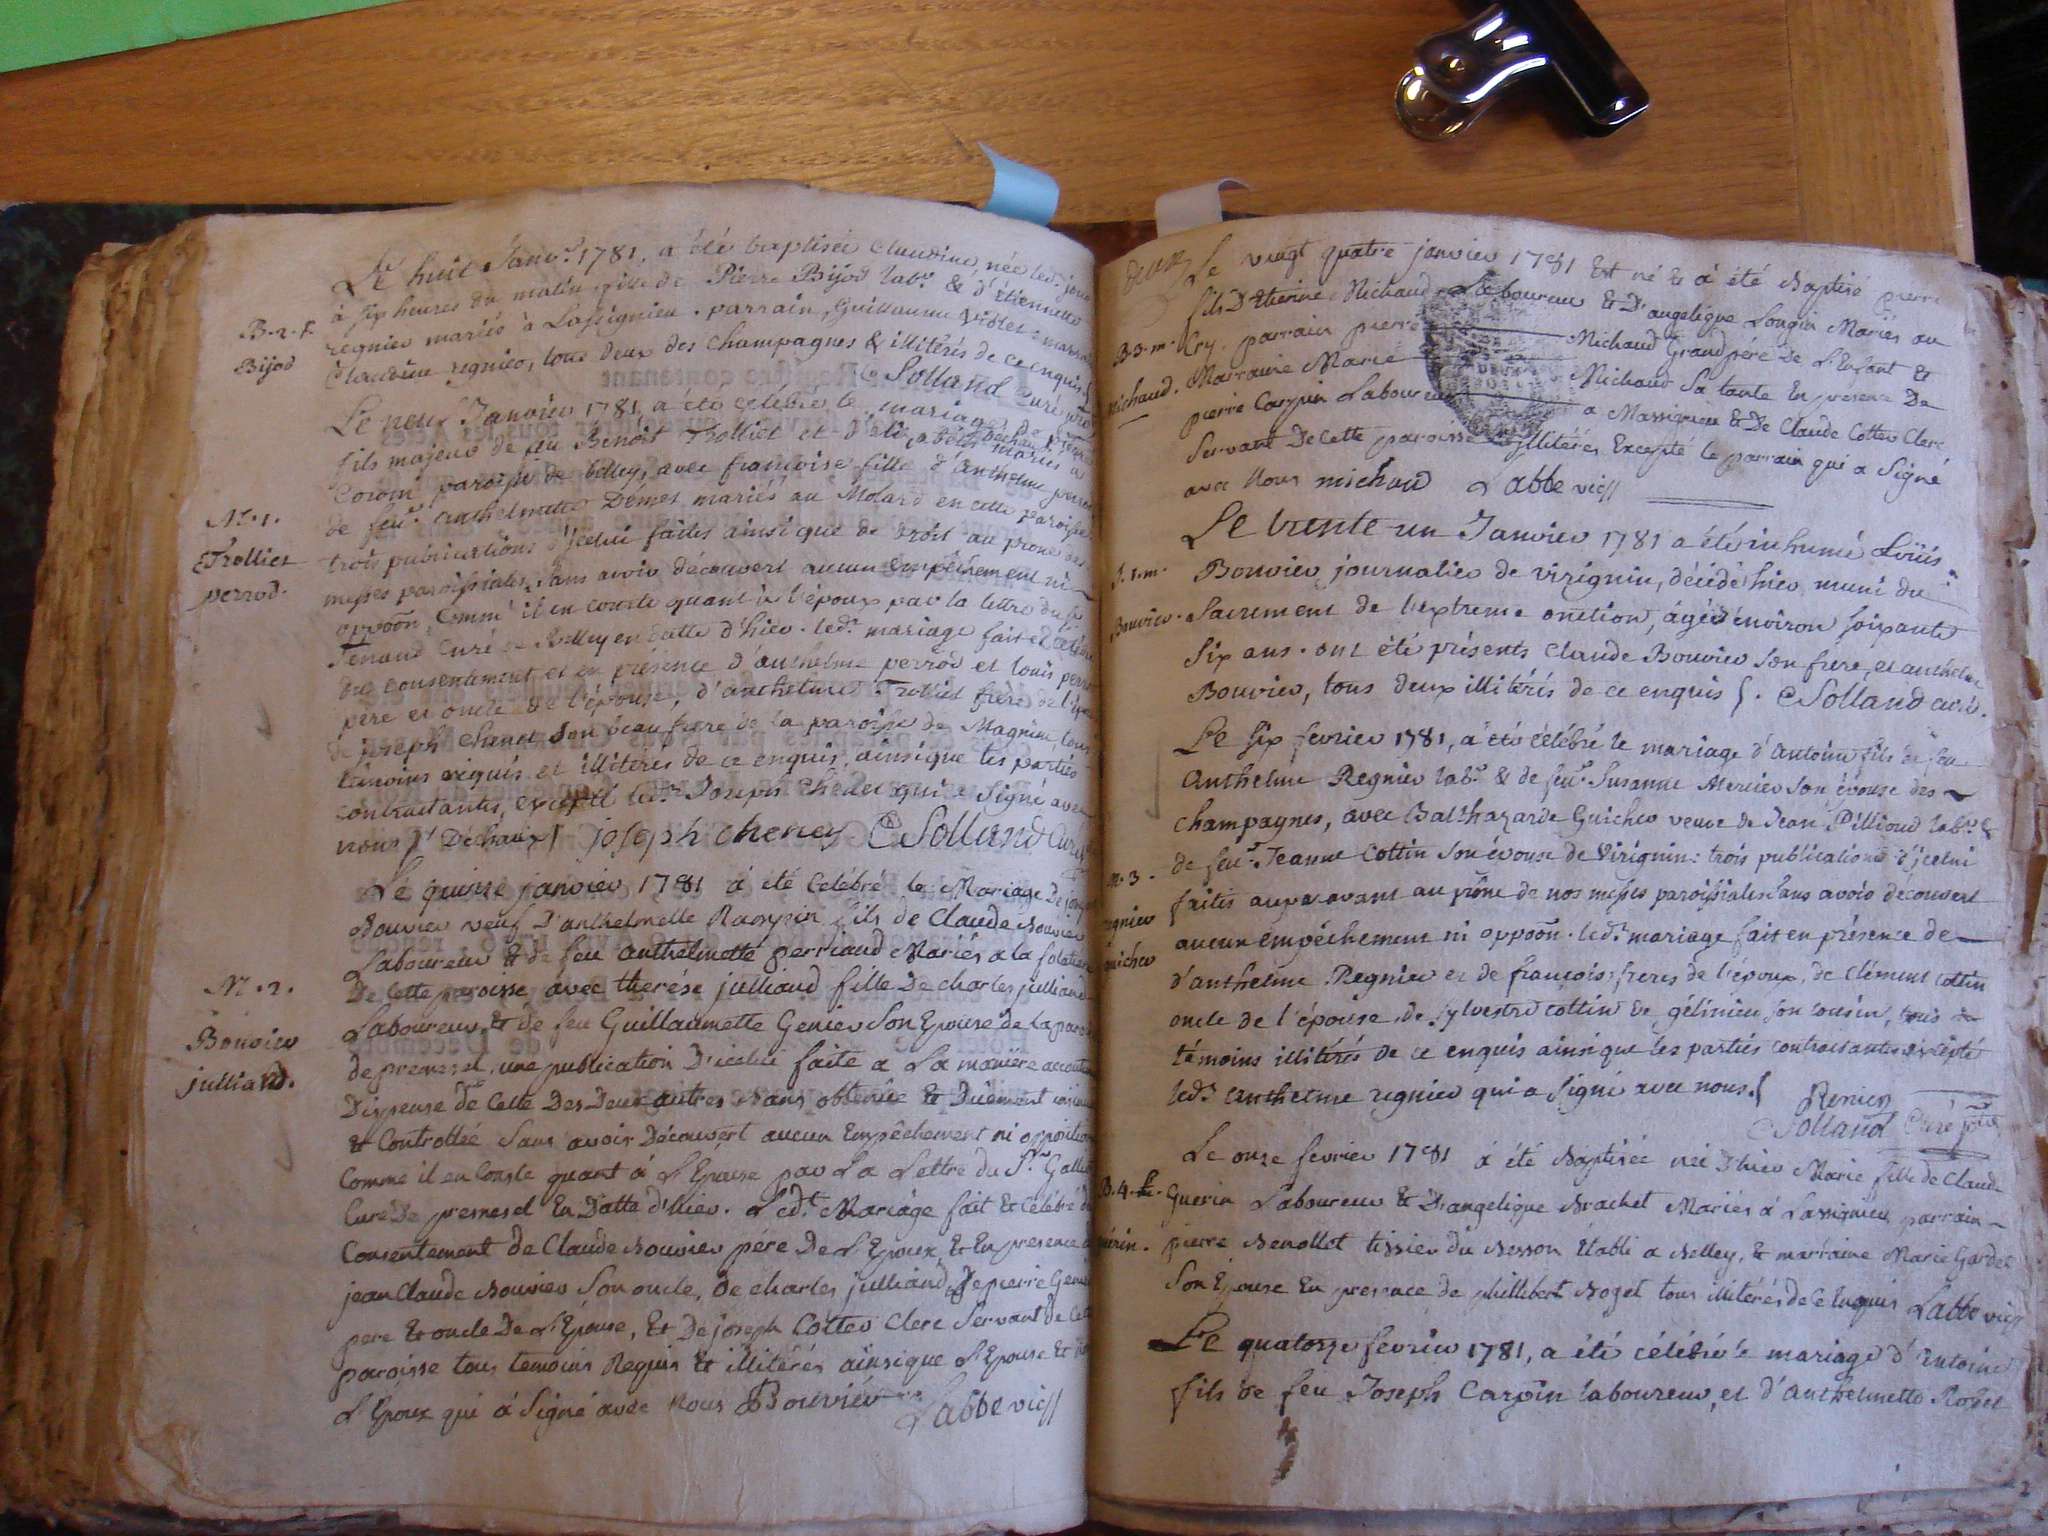 Le huit Janv.r 1781, a été baptisée Claudine née led. jour
à six heures du matin fille de Pierre Bijod lab.r & d'étiennette
B. 2. f.
Bijod
regnier mariés à Lassignieu. parrain, Guillaume Violet & marraine
Claudine regnier, tous deux des champagnes & illitérés de ce enquis
C Solland curé
Le neuf Janvier 1781, a été célébré le mariage de
fils majeur de feu Benoît Trolliet et d' mariés à
Coron paroisse de belley, avec françoise fille d'anthelme perrod
de feu.e anthelmette Demes mariés au Molard en cette paroisse
M. 1.
Trolliet
perrod.
trois publications d'jcelui faites ainsi que de droit au prone des
messes paroissiales, sans avoir découvert aucun empêchement ni
oppoon, comm' il en conste quant à l'époux par la lettre du S.r
Tenand curé de Belley en datte d'hier. led.t mariage fait et célébré
du consentement et en présence d'anthelme perrod et louis perrod
père et oncle de l'épouse, d'anthelme Trolliet frère de l'époux
de joseph chenet son beau frere de la paroisse de Magnieu, tous
témoins requis et illitérés de ce enquis, ainsi que les parties
contractantes, excepté led.t Joseph Chenet qui a signé avec
nous joseph cheney C Solland Curé
Le quinze janvier 1781 à été Celebré le Mariage De
Bouvier veuf D'anthelmette fils de Claude Bouvier
Laboureur & de feu anthelmette perriand Mariés a la
M. 2.
Bouvier
julliand.
De Cette paroisse avec therése julliand fille De charles julliand
Laboureur & de feu Guillaumette Genier son Epouse de la paroisse
de premesel, une publication D'icelui faite a La maniere accoutumée
Dispense de Celle Des Deux autres bans obtenüe & Duëment
& Controllée sans avoir Découvert aucun Empêchement ni opposition
Comme il en Conste quant à L'Epouse par La Lettre du S.r
Curé De premesel En Datte d'hier. Led.t Mariage fait & Célébré du
Consentement de Claude Bouvier pére De L'Epoux, & En presence
jean Claude Bouvier Son oncle, De charles julliand, De pierre Genier
pere & oncle De L'Epouse, Et De joseph Cottier Clerc Servant de Cette
paroisse tous temoins Requis & illitérés ainsique L'Epouse &
L'Epoux qui à Signé avec nous Bouvier Labbe vic
deux
Le vingt quatre janvier 1781 Est né & à été Baptisé pierre
fils D'Etienne Michaud Laboureur & D'angelique Longin Mariés au
B. 3. m.
Michaud.
Cry. parrain pierre Michaud Grand pére De L'Enfant &
Marraine Marie Michaud Sa tante En presence De
pierre Carpin Laboureur a Massignieu & De Claude Cottier Clerc
Servant De Cette paroisse illitérés Excepté le parrain qui a Signé
avec Nous michaud Labbe vic
Le trente un Janvier 1781 a été inhumé Loüis
I. 1. m.
Bouvier.
Bouvier, journalier de virignin, décédé hier muni du
Sacrement de l'extreme onction, âgé d'environ soixante
six ans. ont été présents Claude Bouvier son frere, et anthelme
Bouvier, tous deux illitérés de ce enquis. C Solland curé.
Le six fevrier 1781, a été célébré le mariage d'antoine fils de feu
anthelme Regnier lab.r & de feu.e Susanne Mercier son épouse des
champagnes, avec Balthazarde Guicher veuve de Jean Pillioud lab.r &
M. 3.
regnier
Guicher
de feu.e Jeanne Cottin son épouse de Virignin: trois publications d'jcelui
faites auparavant au prône de nos messes paroissiales sans avoir découvert
aucun empêchement ni oppoon. led.t mariage fait en présence de
d'anthelme Regnier et de françois freres de l'époux, de Clément Cottin
oncle de l'épouse, de sylvestre Cottin de gélinieu son cousin, tous
témoins illitérés de ce enquis ainsi que les parties contractantes excepté
led.t anthelme regnier qui a signé avec nous. Renier
C Solland Curé
Le onze fevrier 1781 à été Baptisée née D'hier Marie fille de Claude
B. 4. f.
Guérin.
Guerin Laboureur & D'angelique Brachet Mariés à Lassignieu, parrain
pierre Benollot tissier du Besson Etabli a Belley, & marraine Marie Gardet
Son Epouse En presence de phillibert Roget tous illitérés de ce Enquis Labbe vic
Le quatorze fevrier 1781, a été célébré le mariage d'Antoine
fils de feu Joseph Carpin laboureur, et d'Anthelmette Roget